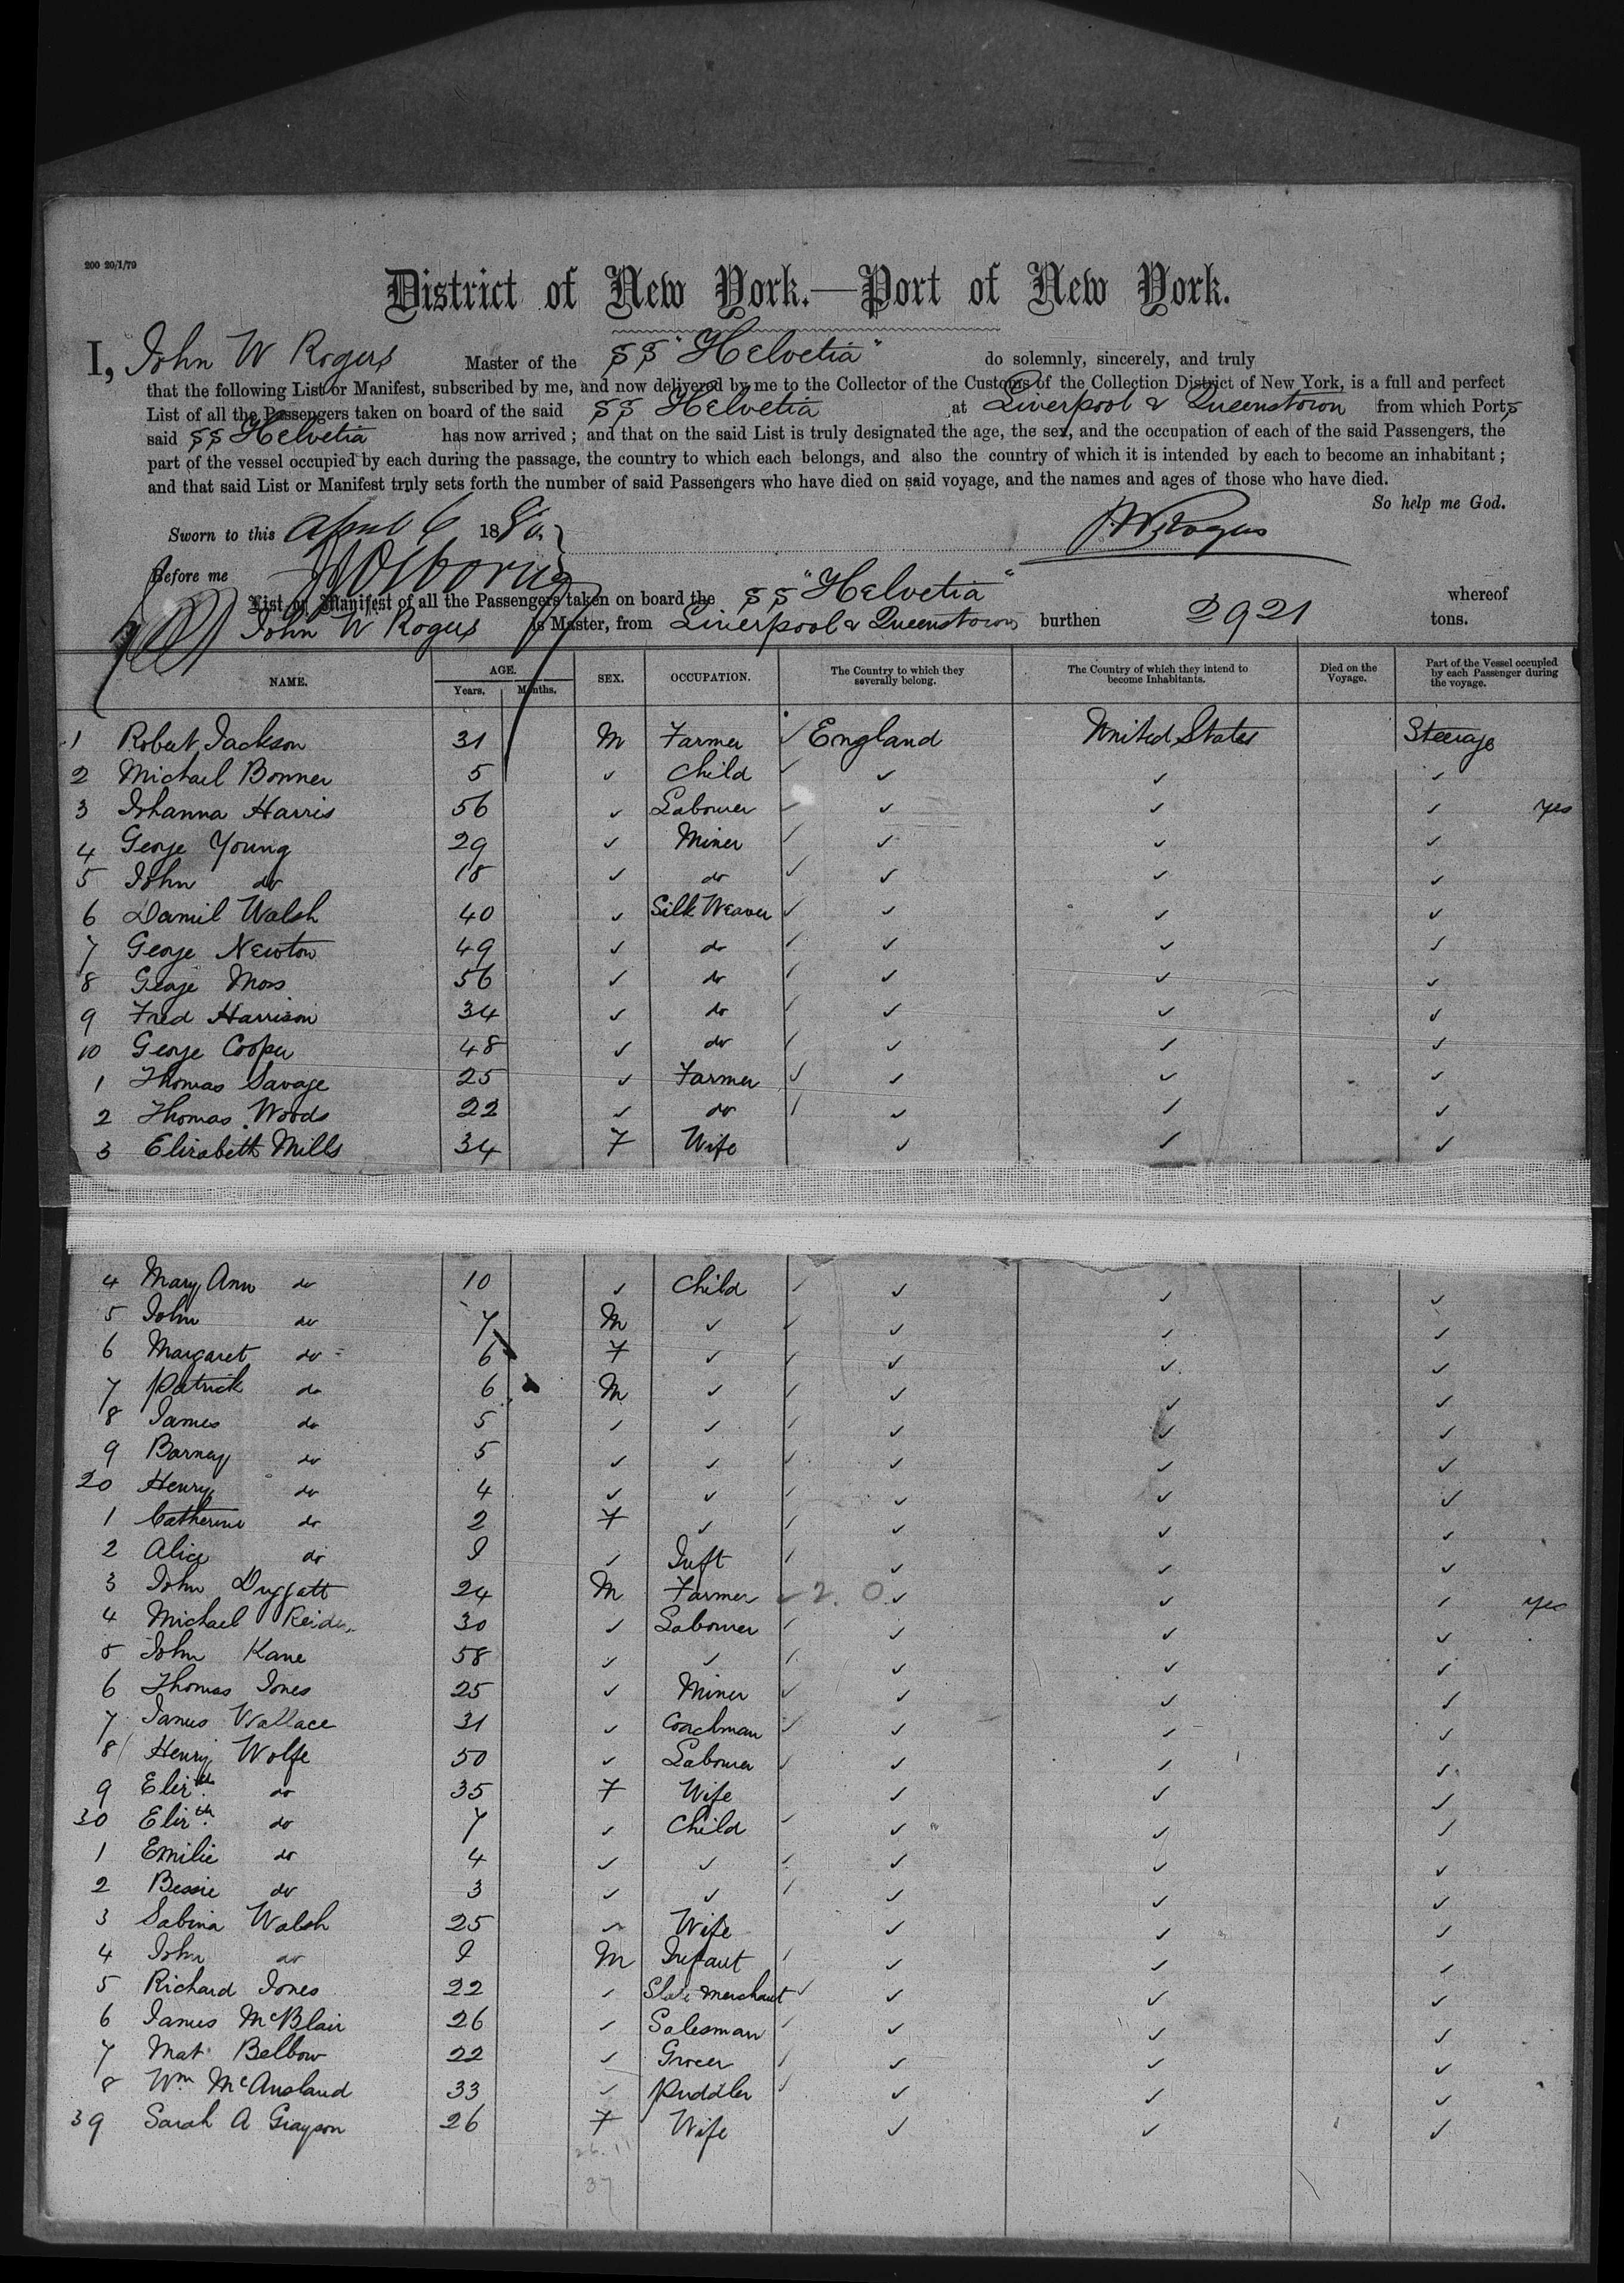 200 20/1/79
District of New York.—Port of New York.
I, John W Rogers Master of the SS "Helvetia" do solemnly, sincerely, and truly
that the following List or Manifest, subscribed by me, and now delivered by me to the Collector of the Customs of the Collection District of New York, is a full and perfect
List of all the Passengers taken on board of the said SS Helvetia at Liverpool & Queenstown from which Ports
said SS Helvetia has now arrived; and that on the said List is truly designated the age, the sex, and the occupation of each of the said Passengers, the
part of the vessel occupied by each during the passage, the country to which each belongs, and also the country of which it is intended by each to become an inhabitant;
and that said List or Manifest truly sets forth the number of said Passengers who have died on said voyage, and the names and ages of those who have died.
So help me God.
Sworn to this April 6 1880. JW Rogers
Before me
List or Manifest of all the Passengers taken on board the SS "Helvetia" whereof
John W Rogers is Master, from Liverpool & Queenstown burthen 2921 tons.
NAME. AGE. Years. Months. SEX. OCCUPATION. The Country to which they severally belong. The Country of which they intend to become Inhabitants. Died on the Voyage. Part of the Vessel occupied by each Passenger during the voyage.
1 Robert Jackson 31 M Farmer ✓ England United States Steerage
2 Michael Bonner 5 ✓ Child ✓ ✓ ✓ ✓
3 Johanna Harris 56 ✓ Labourer ✓ ✓ ✓ ✓ yes
4 George Young 29 ✓ Miner ✓ ✓ ✓ ✓
5 John do 18 ✓ do ✓ ✓ ✓ ✓
6 Daniel Walsh 40 ✓ Silk Weaver ✓ ✓ ✓ ✓
7 George Newton 49 ✓ do ✓ ✓ ✓ ✓
8 George Moss 56 ✓ do ✓ ✓ ✓ ✓
9 Fred Harrison 34 ✓ do ✓ ✓ ✓ ✓
10 George Cooper 48 ✓ do ✓ ✓ ✓ ✓
1 Thomas Savage 25 ✓ Farmer ✓ ✓ ✓ ✓
2 Thomas Woods 22 ✓ do ✓ ✓ ✓ ✓
3 Elizabeth Mills 34 F Wife ✓ ✓ ✓
4 Mary Ann do 10 ✓ Child ✓ ✓ ✓ ✓
5 John do 7 M ✓ ✓ ✓ ✓ ✓
6 Margaret do 6 F ✓ ✓ ✓ ✓ ✓
7 Patrick do 6 M ✓ ✓ ✓ ✓ ✓
8 James do 5 ✓ ✓ ✓ ✓ ✓ ✓
9 Barney do 5 ✓ ✓ ✓ ✓ ✓ ✓
20 Henry do 4 ✓ ✓ ✓ ✓ ✓ ✓
1 Catherine do 2 F ✓ ✓ ✓ ✓ ✓
2 Alice do I ✓ Inft ✓ ✓ ✓ ✓
3 John Duggatt 24 M Farmer ✓ 2. 0. ✓ ✓ ✓ yes
4 Michael 30 ✓ Labourer ✓ ✓ ✓ ✓
5 John Kane 58 ✓ ✓ ✓ ✓ ✓ ✓
6 Thomas Jones 25 ✓ Miner ✓ ✓ ✓ ✓
7 James Wallace 31 ✓ Coachman ✓ ✓ ✓ ✓
8 Henry Wolfe 50 ✓ Labourer ✓ ✓ ✓ ✓
9 Eliz.th do 35 F Wife ✓ ✓ ✓
30 Eliz.th do 7 ✓ Child ✓ ✓ ✓ ✓
1 Emilie do 4 ✓ ✓ ✓ ✓ ✓ ✓
2 Bessie do 3 ✓ ✓ ✓ ✓ ✓ ✓
3 Sabina Walsh 25 ✓ Wife ✓ ✓ ✓
4 John do I M Infant ✓ ✓ ✓ ✓
5 Richard Jones 22 ✓ Slate Merchant ✓ ✓ ✓ ✓
6 James McBlair 26 ✓ Salesman ✓ ✓ ✓ ✓
7 Mat Belbow 22 ✓ Grocer ✓ ✓ ✓ ✓
8 Wm McAusland 33 ✓ Puddler ✓ ✓ ✓ ✓
39 Sarah A Grayson 26 F Wife ✓ ✓ ✓
26. 11
37